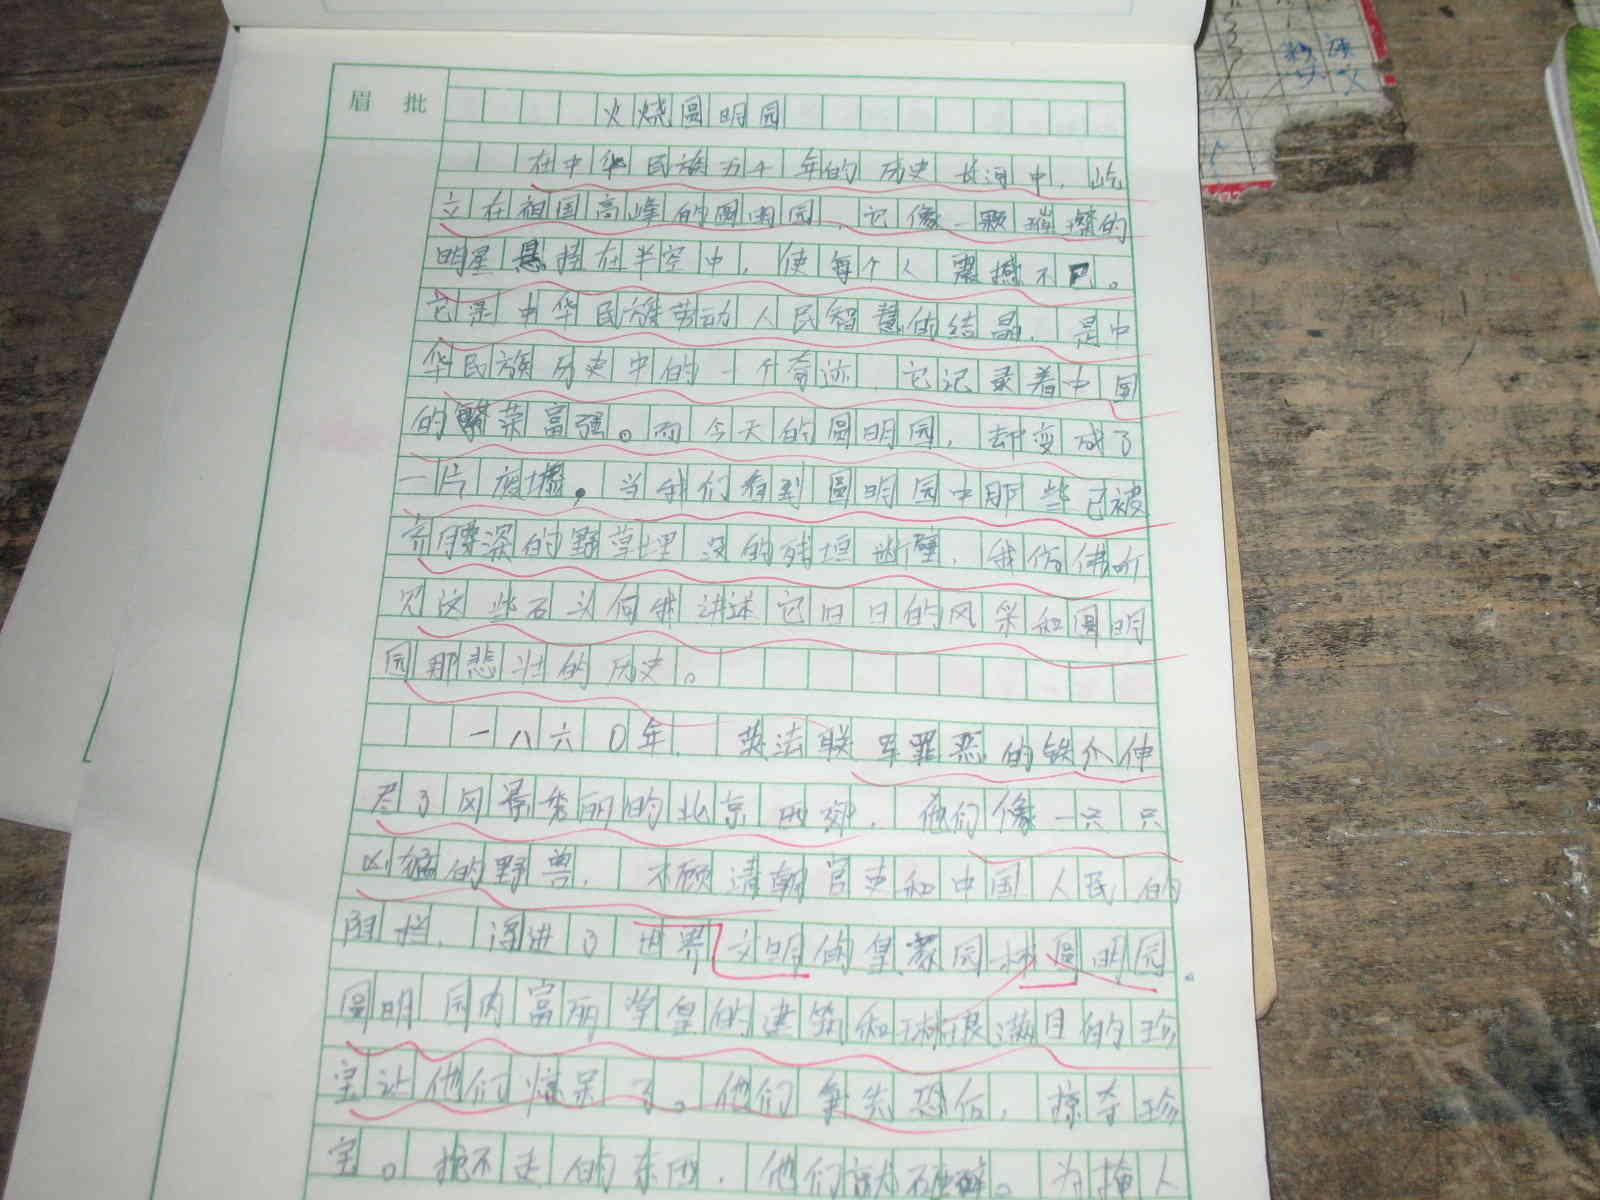 眉批
火烧圆明园
在中华民族五千年的历史长河中，屹
立在祖国高峰的圆明园，它像一颗璀璨的
明星悬挂在半空中，使每个人震撼不已。
它是中华民族劳动人民智慧的结晶，是中
华民族历史中的一个奇迹，它记录着中国
的繁荣富强。而今天的圆明园，却变成了
一片废墟，当我们看到圆明园中那些已被
齐腰深的野草埋没的残垣断壁，我仿佛听
见这些石头向我讲述它旧日的风采和圆明
园那悲壮的历史。
一八六0年，英法联军罪恶的铁爪伸
尽了风景秀丽的北京西郊，他们像一只只
凶猛的野兽，不顾清朝官吏和中国人民的
阻拦，闯进了世界文明的皇家园林圆明园。
圆明园内富丽堂皇的建筑和琳琅满目的珍
宝让他们惊呆了。他们争先恐后，掠夺珍
宝。抱不走的东西，他们就砸碎。为掩人